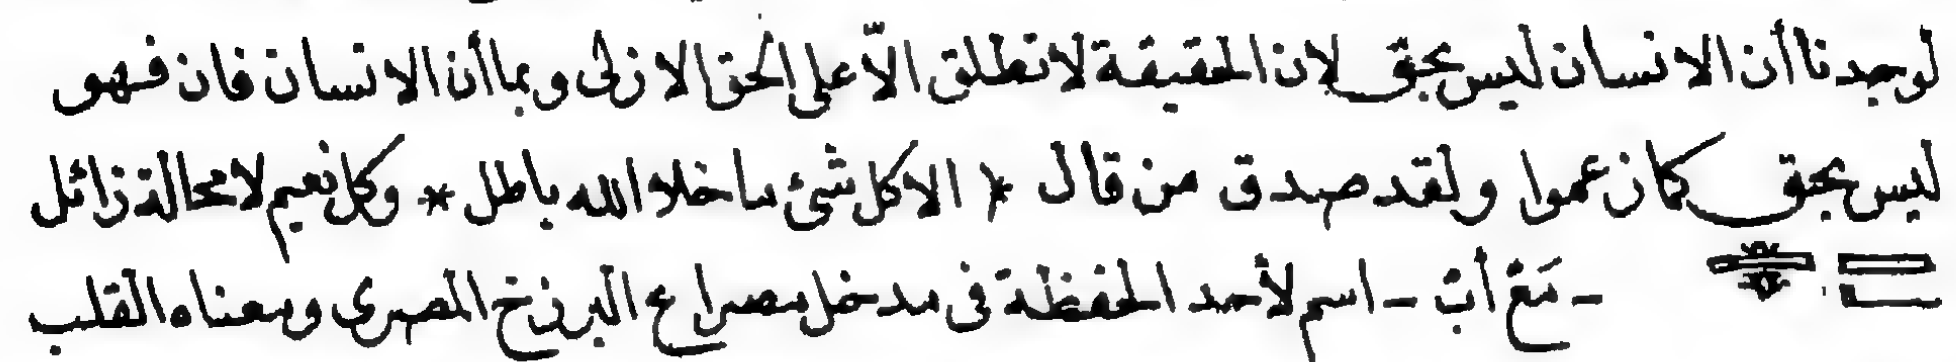 لوجدنا أن الانسان ليس بحق لان الحقيقة لا تطلق الاّ على الحق الازلى وبما أن الانسان فان فهو
ليس بحق كما زعموا ولقد صدق من قال * الا كل شئ ما خلا الله باطل * وكل نعيم لا محالة زائل
– مَعْ أبْ – اسم لأحد الحفظة فى مدخل مصراع البرزخ المصرى ومعناه القلب